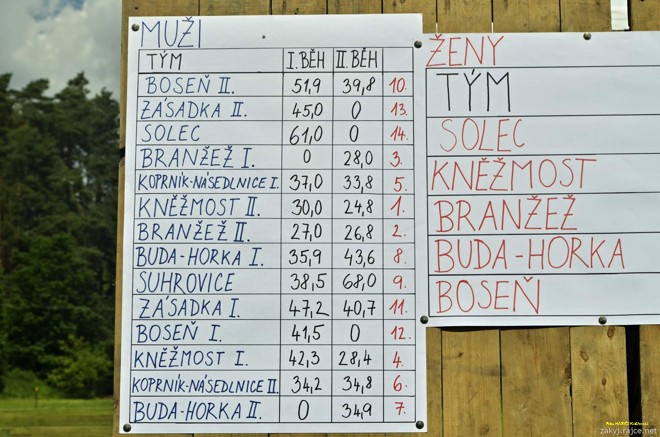 MUŽI
TÝM I. BĚH II. BĚH
BOSEŇ II. 51,9 39,8 10.
ZÁSADKA II. 45,0 0 13.
SOLEC 61,0 0 14.
BRANŽEŽ I. 0 28,0 3.
KOPRNÍK-NÁSEDLNICE I. 37,0 33,8 5.
KNĚŽMOST II. 30,0 24,8 1.
BRANŽEŽ II. 27,0 26,8 2.
BUDA-HORKA I. 35,9 43,6 8.
SUHROVICE 38,5 68,0 9.
ZÁSADKA I. 47,2 40,7 11.
BOSEŇ I. 41,5 0 12.
KNĚŽMOST I. 42,3 28,4 4.
KOPRNÍK-NÁSEDLNICE II. 34,2 34,8 6.
BUDA-HORKA II. 0 34,9 7.
ŽENY
TÝM
SOLEC
KNĚŽMOST
BRANŽEŽ
BUDA-HORKA
BOSEŇ
zakyj.rajce.net